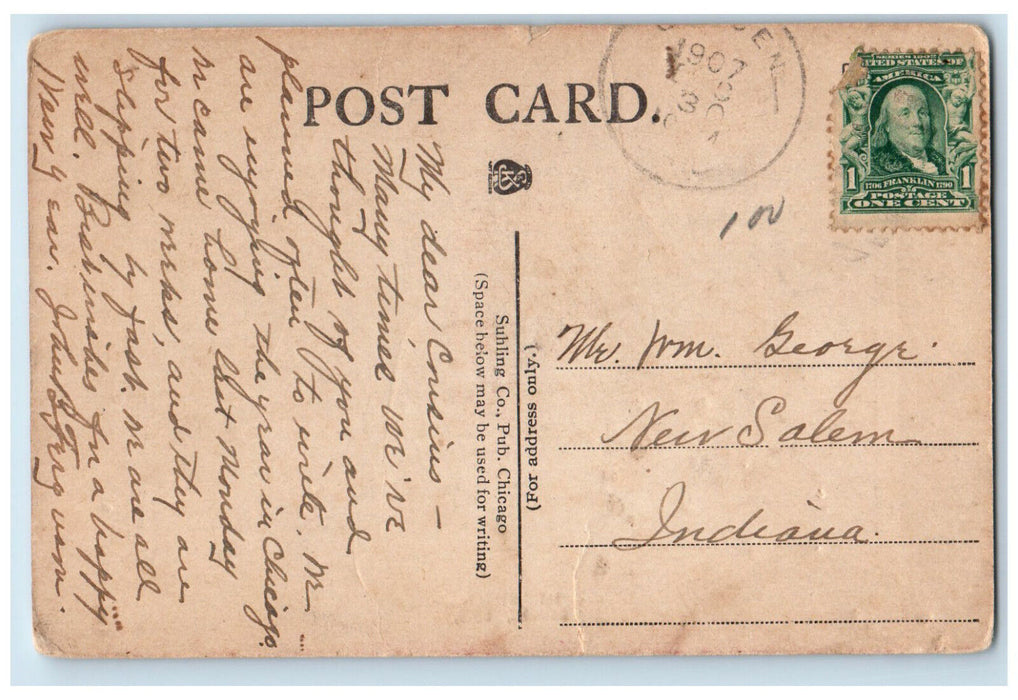 POST CARD.
1907
SERIES 1902
UNITED STATES OF
AMERICA
1 1706 FRANKLIN 1790 1
POSTAGE
ONE CENT
100
My dear Cousins –
Many times we've
thought of you and
planned often to write. We
are enjoying the year in Chicago.
We came home last Monday
for two weeks, and they are
slipping by fast. We are all
well. Best wishes for a happy
New Year.
Suhling Co., Pub. Chicago
(Space below may be used for writing)
(For address only.)
Mr. Wm. George.
New Salem
Indiana.